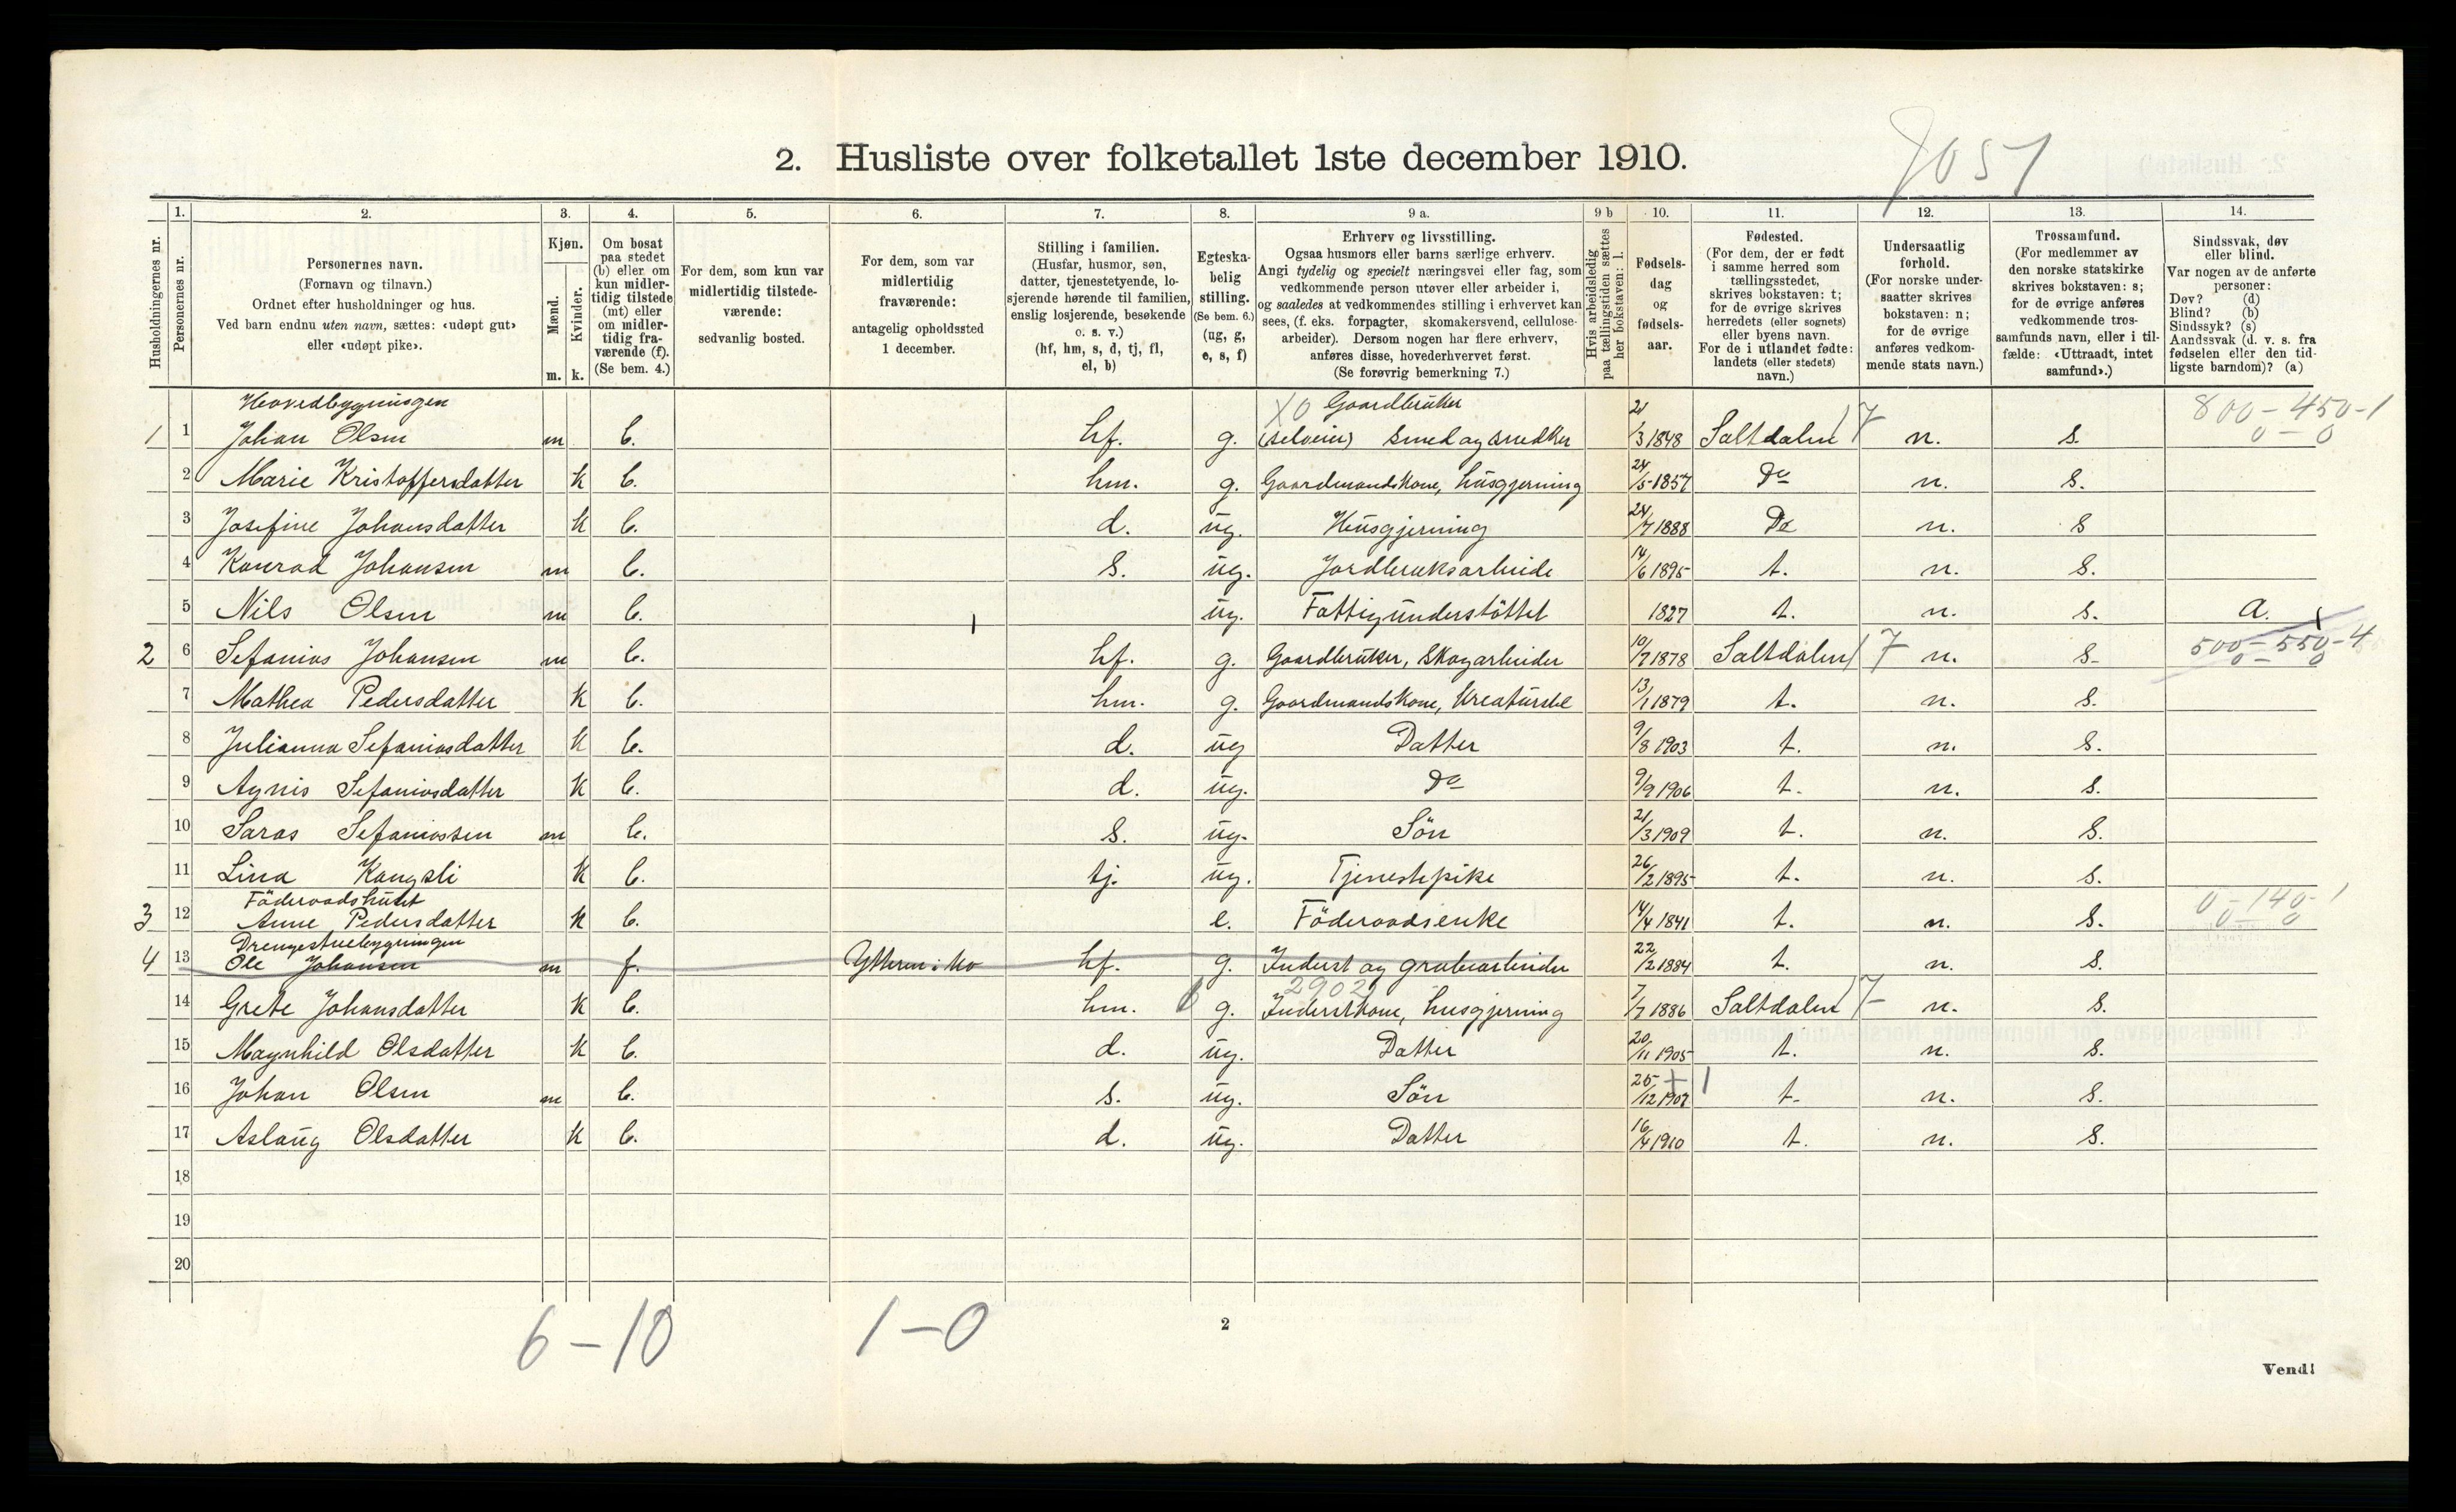 7051
2. Husliste over folketallet 1ste december 1910.
Husholdningernes nr.
1. Personernes nr.
2. Personernes navn.
(Fornavn og tilnavn.)
Ordnet efter husholdninger og hus.
Ved barn endnu uten navn, sættes: «udøpt gut»
eller «udøpt pike».
3. Kjøn.
Mænd. m.
Kvinder. k.
4. Om bosat
paa stedet
(b) eller om
kun midler-
tidig tilstede
(mt) eller
om midler-
tidig fra-
værende (f).
(Se bem. 4.)
5. For dem, som kun var
midlertidig tilstede-
værende:
sedvanlig bosted.
6. For dem, som var
midlertidig
fraværende:
antagelig opholdssted
1 december.
7. Stilling i familien.
(Husfar, husmor, søn,
datter, tjenestetyende, lo-
sjerende hørende til familien,
enslig losjerende, besøkende
o. s. v.)
(hf, hm, s, d, tj, fl,
el, b)
8. Egteska-
belig
stilling.
(Se bem. 6.)
(ug, g,
e, s, f)
9 a. Erhverv og livsstilling.
Ogsaa husmors eller barns særlige erhverv.
Angi tydelig og specielt næringsvei eller fag, som
vedkommende person utøver eller arbeider i,
og saaledes at vedkommendes stilling i erhvervet kan
sees, (f. eks. forpagter, skomakersvend, cellulose-
arbeider). Dersom nogen har flere erhverv,
anføres disse, hovederhvervet først.
(Se forøvrig bemerkning 7.)
9 b Hvis arbeidsledig
paa tællingstiden sættes
her bokstaven: l.
10. Fødsels-
dag
og
fødsels-
aar.
11. Fødested.
(For dem, der er født
i samme herred som
tællingsstedet,
skrives bokstaven: t;
for de øvrige skrives
herredets (eller sognets)
eller byens navn.
For de i utlandet fødte:
landets (eller stedets)
navn.)
12. Undersaatlig
forhold.
(For norske under-
saatter skrives
bokstaven: n;
for de øvrige
anføres vedkom-
mende stats navn.)
13. Trossamfund.
(For medlemmer av
den norske statskirke
skrives bokstaven: s;
for de øvrige anføres
vedkommende tros-
samfunds navn, eller i til-
fælde: «Uttraadt, intet
samfund».)
14. Sindssvak, døv
eller blind.
Var nogen av de anførte
personer:
Døv? (d)
Blind? (b)
Sindssyk? (s)
Aandssvak (d. v. s. fra
fødselen eller den tid-
ligste barndom)? (a)
Hovedbygningen X0 Gaardbruker 800-450-1
1 1 Johan Olsen m b. hf. g. (selveier) Smed og snedker 21/3 1848 Saltdalen 7 n. s. 0-0
2 Marie Kristoffersdatter k b. hm. g. Gaardmandskone, husgjerning 24/5 1857 Do n. s.
3 Josefine Johansdatter k b. d. ug. Husgjerning 24/7 1888 Do n. s
4 Konrad Johansen m b. s. ug. Jordbruksarbeide 14/6 1895 t. n. s.
5 Nils Olsen m b. ug. Fattigunderstöttet 1827 t. n. s. a.
2 6 Sefanias Johansen m b. hf. g. Gaardbruker, Skogarbeider 10/7 1878 Saltdalen 7 n. s. 500-550-4 0-0
7 Mathea Pedersdatter k b. hm. g. Gaardmandskone, kreaturstel 13/1 1879 t. n. s.
8 Julianna Sefaniasdatter k b. d. ug Datter 9/8 1903 t. n. s.
9 Agnis Sefaniasdatter k b. d. ug. Do 9/9 1906 t. n. s.
10 Saras Sefaniassen m b. s. ug. Sön 21/3 1909 t. n. s.
11 Lina Kangsli k b. tj. ug. Tjenestepike 26/2 1895 t. n. s.
Föderaadshuset 0-140-1
3 12 Anne Pedersdatter k b. e. Föderaadsenke 14/4 1841 t. n. s. 0 0
Drengestuebygningen
4 13 Ole Johansen m f. Ytteren i Mo hf. g. Inderst og grubearbeider 22/2 1884 t. n. s.
2902
14 Grete Johansdatter k b. hm. g. Inderstkone, husgjerning 7/7 1886 Saltdalen 7 n. s.
15 Magnhild Olsdatter k b. d. ug. Datter 20/11 1905 t. n. s.
16 Johan Olsen m b. s. ug. Sön 25/12 1907 + 1 t. n. s.
17 Aslaug Olsdatter k b. d. ug. Datter 16/4 1910 t. n. s.
18
19
20
6-10 1-0
2
Vend!